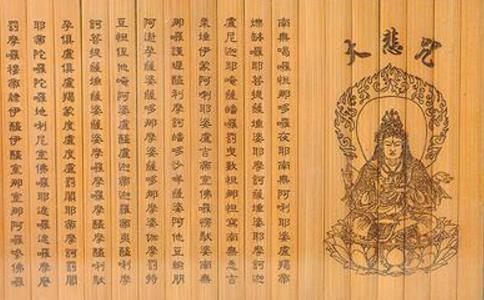 大悲咒
南無喝囉怛那哆囉夜耶南無阿唎耶婆盧羯帝
爍缽囉耶菩提薩埵婆耶摩訶薩埵婆耶摩訶迦
盧尼迦耶唵薩皤囉罰曳數怛那怛寫南無悉吉
栗埵伊蒙阿唎耶婆盧吉帝室佛囉楞馱婆南無
那囉謹墀醯利摩訶皤哆沙咩薩婆阿他豆輸朋
阿逝孕薩婆薩哆那摩婆薩哆那摩婆伽摩罰特
豆怛姪他唵阿婆盧醯盧迦帝迦羅帝夷醯唎摩
訶菩提薩埵薩婆薩婆摩囉摩囉摩醯摩醯唎馱
孕俱盧俱盧羯蒙度盧度盧罰闍耶帝摩訶罰闍
耶帝陀囉陀囉地唎尼室佛囉耶遮囉遮囉麼麼
罰摩囉穆帝隸伊醯伊醯室那室那阿囉參佛囉